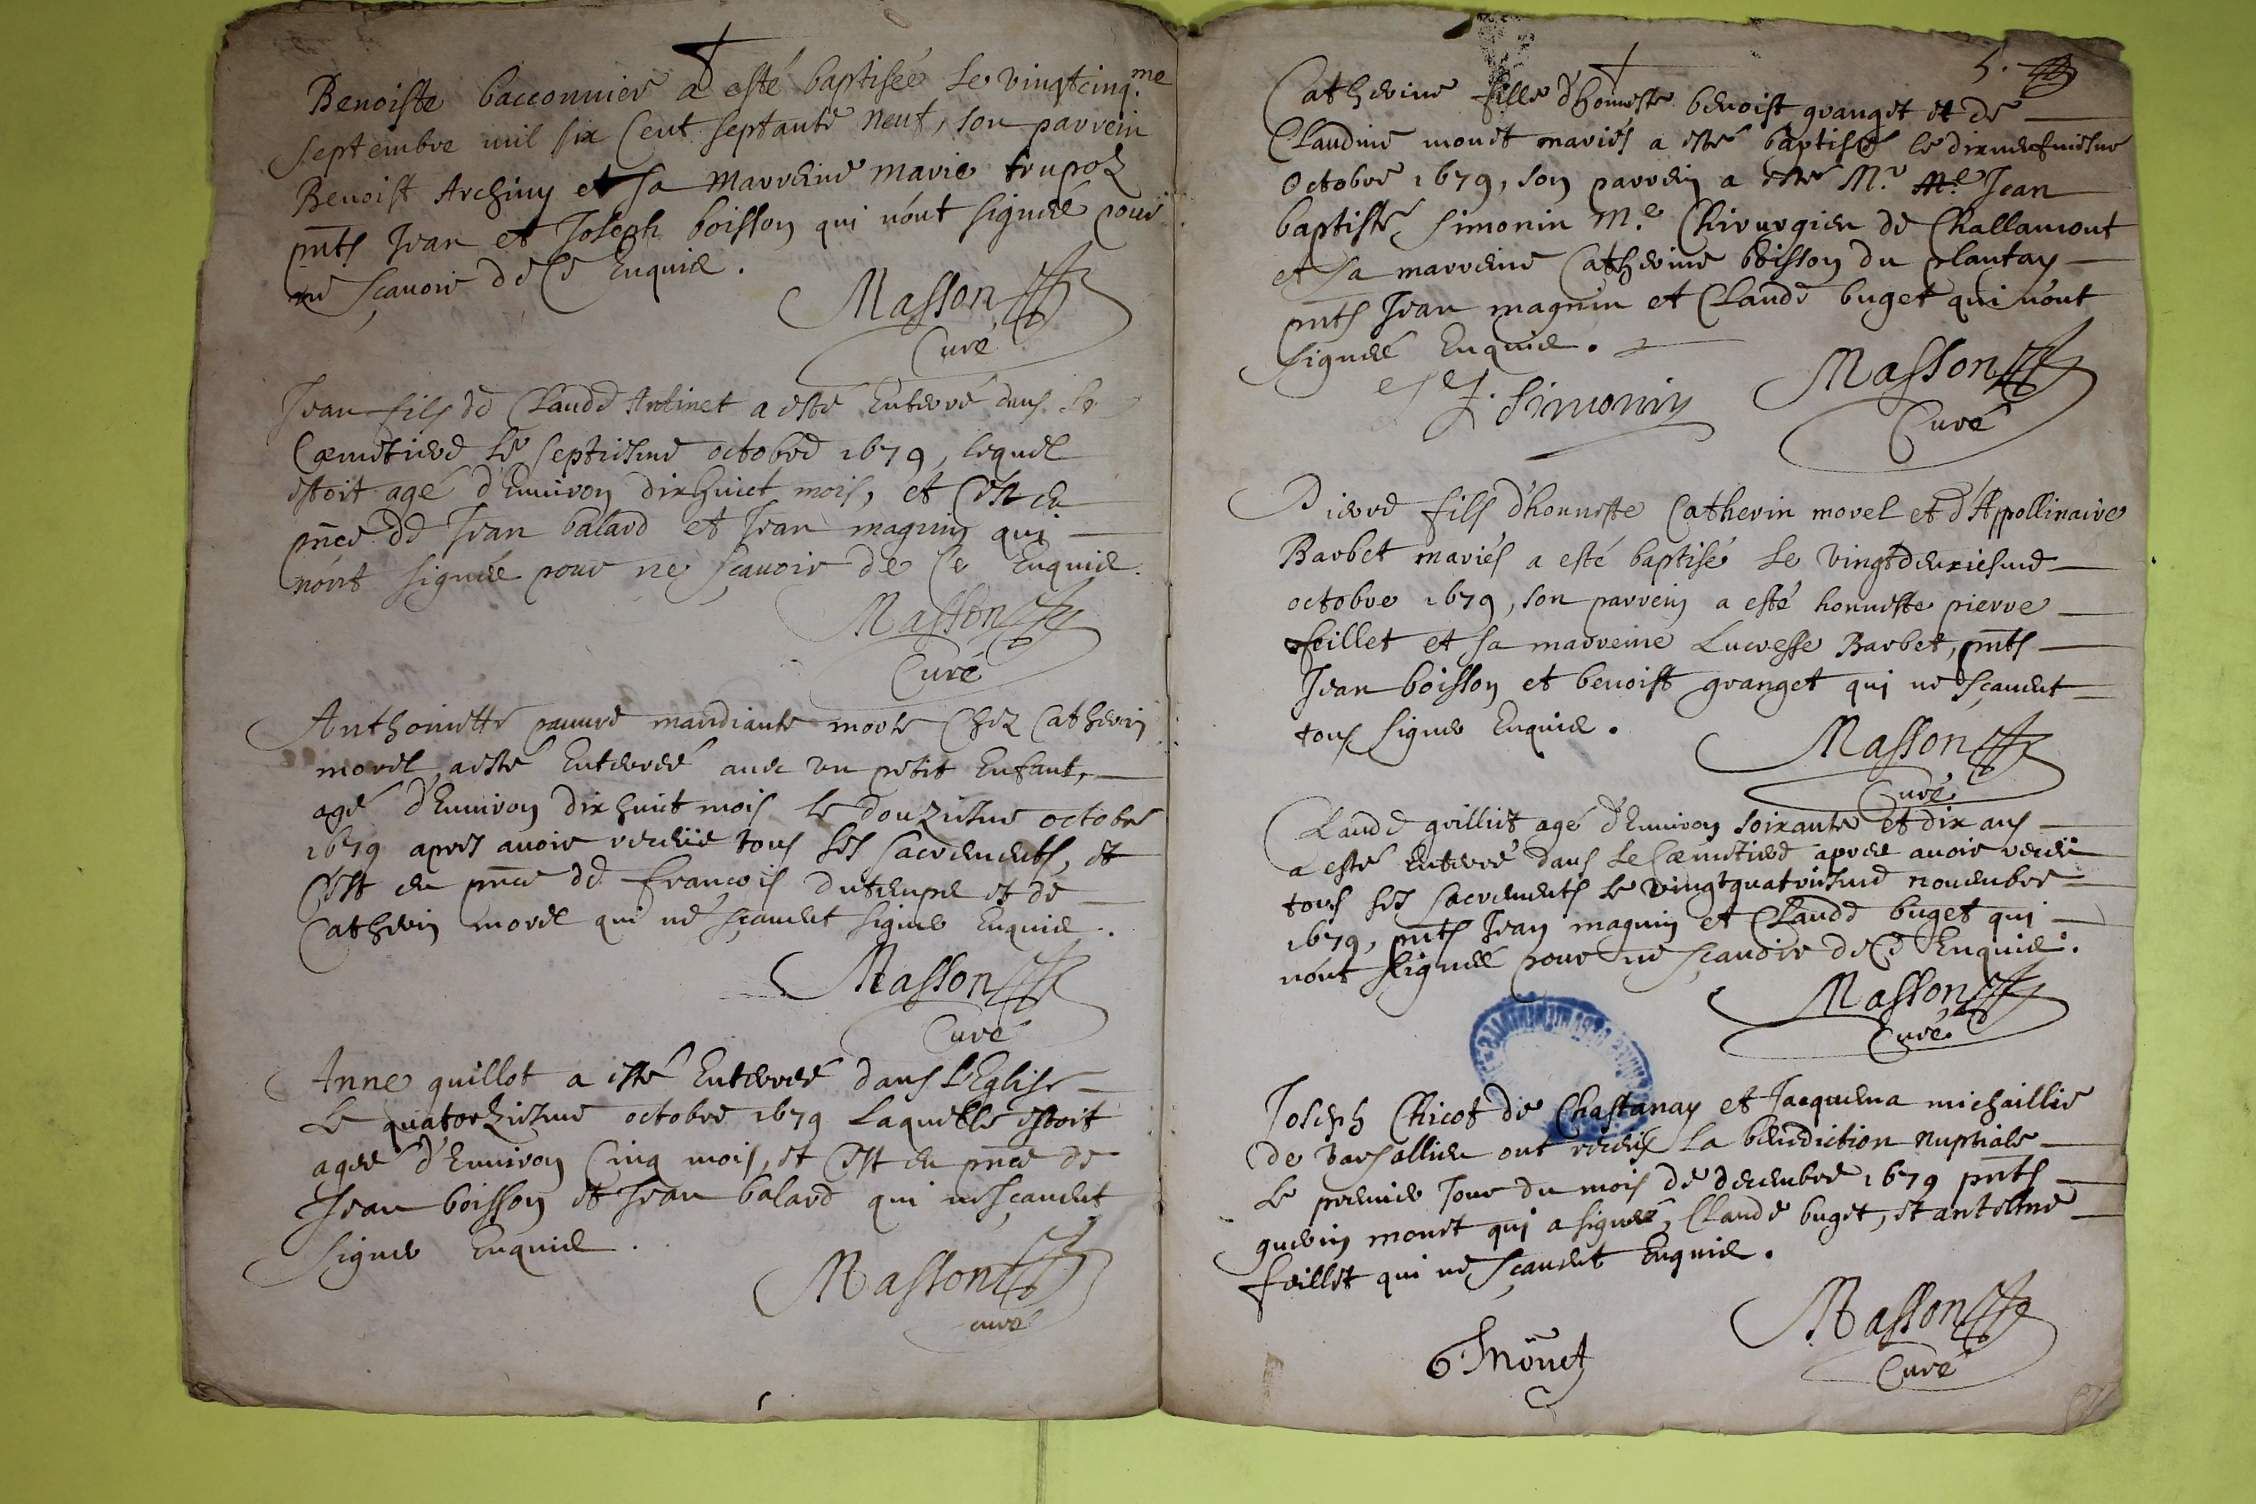 Benoiste bacconnier a esté baptiseé le vingtcinq.me
septembre mil six Cent septante neuf, son parrein
Benoist Archiny et sa Marreine marie trupoz
pnts Jean et Joseph boisson qui n'ont signeé pour
ne sçauoir de ce Enquis.
Masson
Curé
Jean fils de Claude Antinet a esté Enterré dans le
Cœmetiere le septiesme octobre 1679, lequel
estoit agé d'Enuiron dixhuict mois, et C'est en
pnce de Jean balard et Jean magnin qui
n'ont signeé pour ne sçauoir de Ce Enquis.
Masson
Curé
Anthoinette pauure mandiante morte Chez Catherin
morel a esté Enterreé auec vn petit Enfant,
agé d'Enuiron dix huit mois le douziesme octobre
1679 apres auoir receüe tous ses sacrements, et
C'est en pnce de françois dutempe et de
Catherin morel qui ne sçauent signer Enquis.
Masson
Curé
Anne guillot a esté Enterreé dans L'Eglise
Le quatorziesme octobre 1679 Laquelle estoit
ageé d'Enuiron Cinq mois, et C'est en pnce de
Jean boisson et Jean balard qui ne sçauent
signer Enquis.
Masson
curé
5.
Catherine fille d'honneste benoist granget et de
Claudine monet mariés a esté baptiseé le dixneufuiesme
Octobre 1679, son parrein a esté M.r Jean
baptiste simonin M.e Chirurgien de Challamont
et sa marreine Catherine boisson du plantay
pnts Jean magnin et Claude buget qui n'ont
signeé Enquis.
J. Simonin
Masson
Curé
Pierre fils d'honneste Catherin morel et d'Appollinaire
Barbet mariés a esté baptisé le vingtdeuxiesme
octobre 1679, son parrein a esté honneste pierre
feillet et sa marreine Lucresse Barbet, pnts
Jean boisson et benoist granget qui ne sçauent
tous signer Enquis.
Masson
Curé
Claude guilliet agé d'Enuiron soixante et dix ans
a esté Enterré dans le Cœmetiere aprée auoir receü
tous ses sacrements le vingtquatriesme nouembre
1679, pnts Jean magnin et Claude buget qui
n'ont signeé pour ne sçauoir de ce Enquis.
Masson
Curé
Joseph Chicot de Chastanay et Jacquema michaillie
de Varsallieu ont receüs La benediction nuptiale
Le premier Jour du mois de decembre 1679 pnts
guerin monet qui a signeé, Claude buget, et antoine
feillet qui ne sçauent Enquis.
Masson
Curé
G Mönet